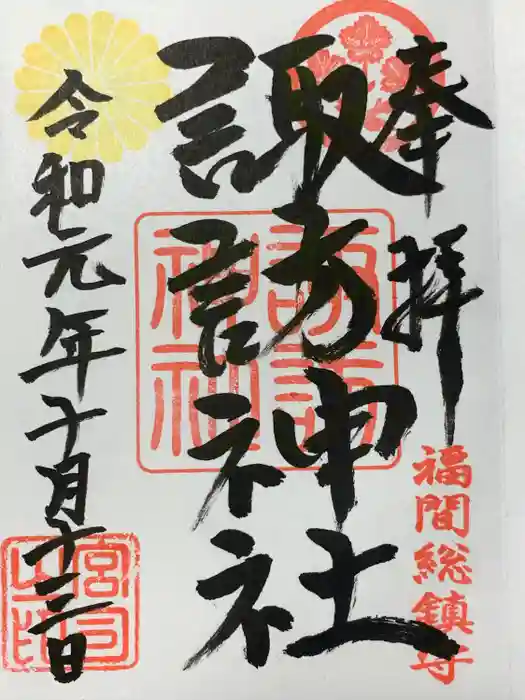 奉拝
福間総鎮守
諏訪神社
諏訪神社
令和元年十月十三日
宮司之印